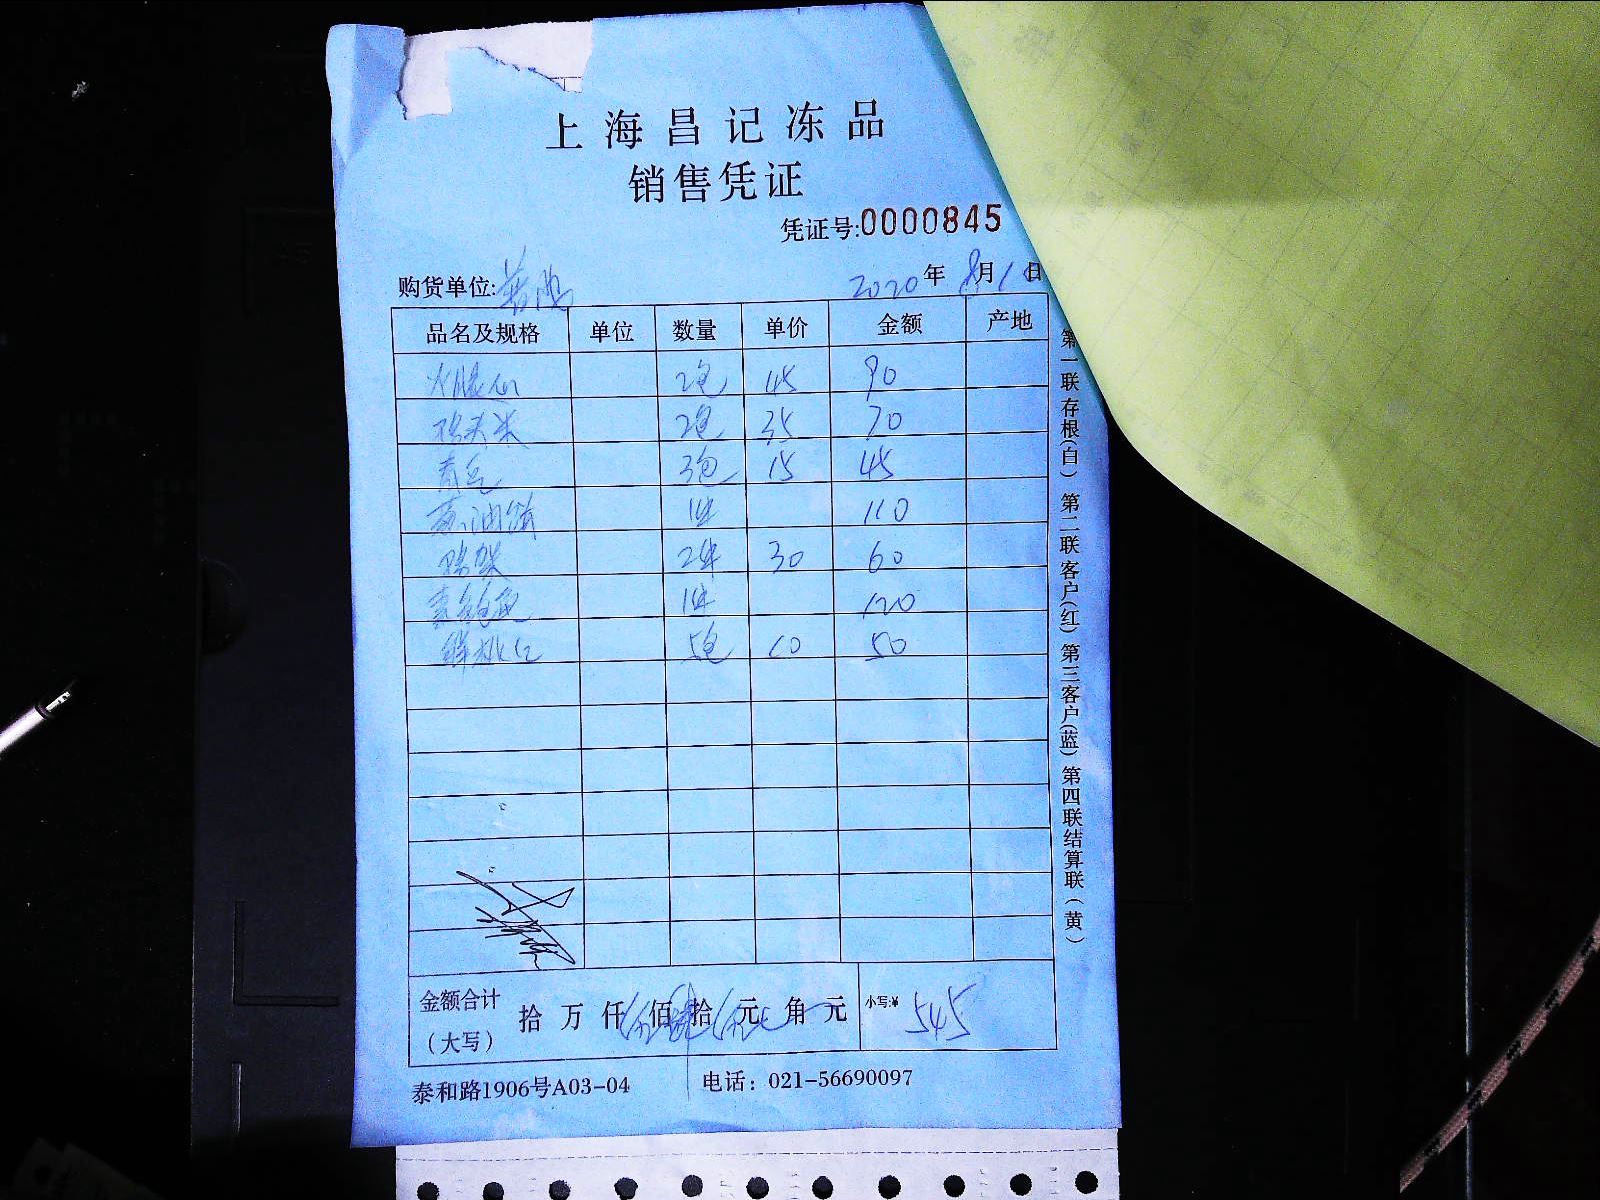 上海昌记冻品
销售凭证
凭证号:0000845
购货单位: 2020年8月1日
品名及规格 单位 数量 单价 金额 产地
2包 45 90
2包 35 70
3包 15 45
1件 110
2件 30 60
1件 120
5包 10 50
金额合计
（大写） 拾 万 仟 伍 佰 肆 拾 伍 元 角 元 小写:¥ 545
泰和路1906号A03-04 电话：021-56690097
第一联存根（白）第二联客户（红）第三客户（蓝）第四联结算联（黄）